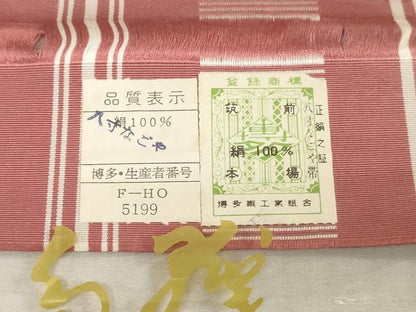 品質表示
絹100%
八寸なごや
博多・生産者番号
F-HO
5199
登録商標
筑前
絹100%
本場
正絹之証
八寸なごや帯
博多織工業組合